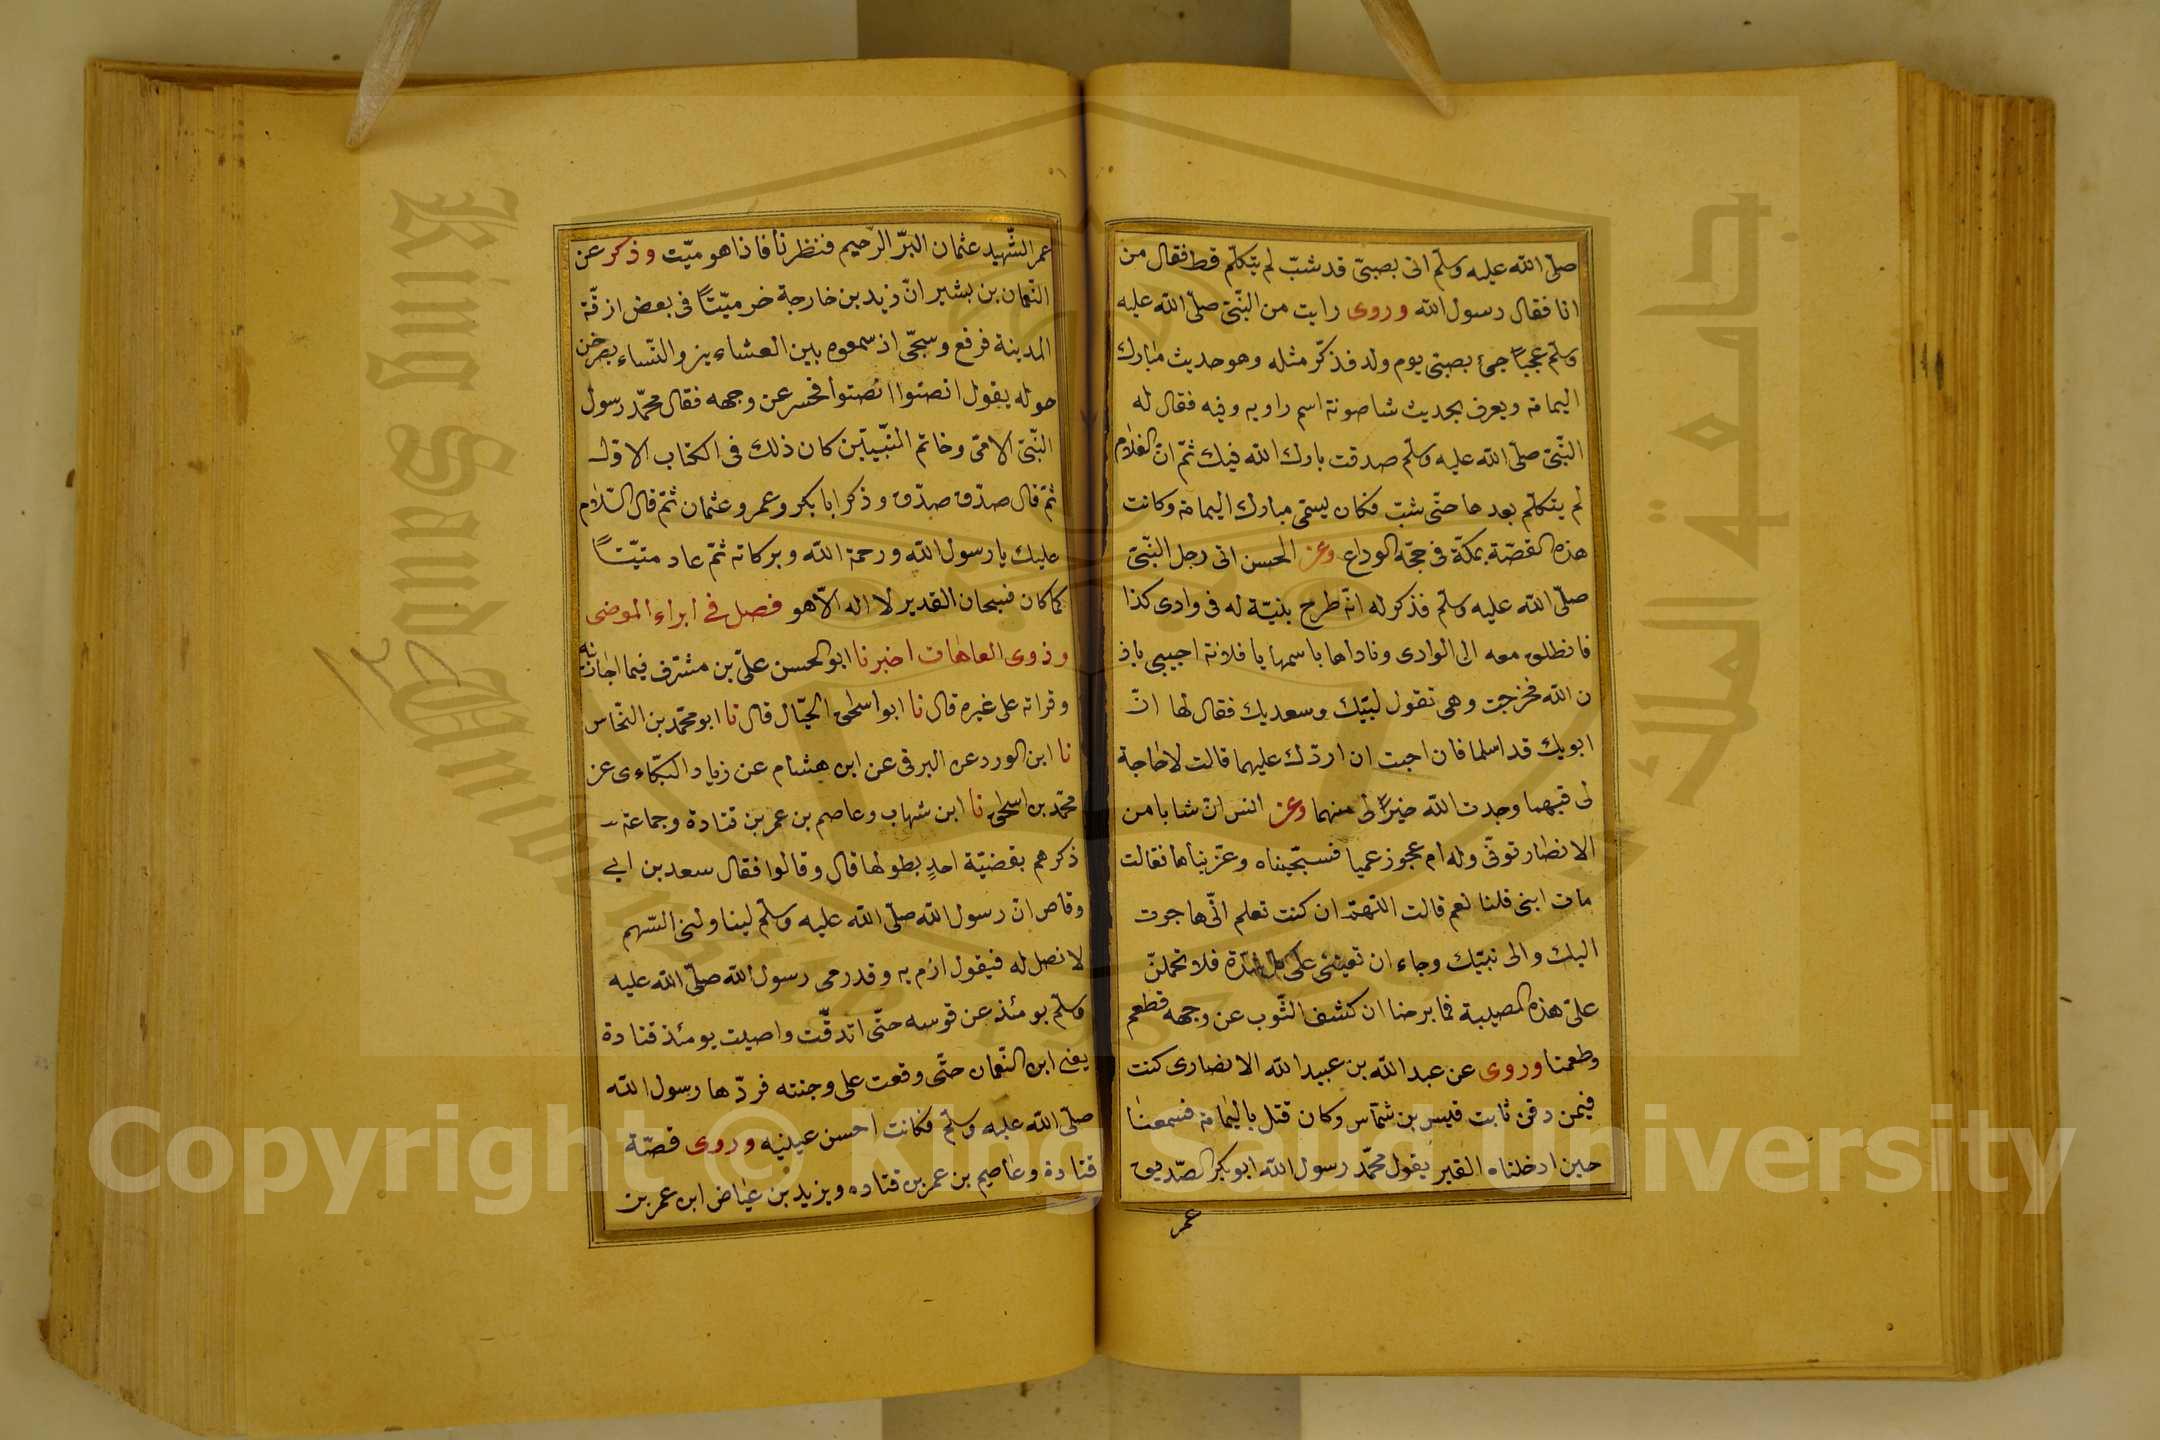 صلّى الله عليه وسلّم اتى بصبىّ قد شبّ لم يتكلّم قط فقال من
انا فقال رسول الله وروى رايت من النّبىّ صلّى الله عليه
وسلّم عجبًا جئ بصبىّ يوم ولد فذكّر مثله وهو حديث مبارك
اليمامة ويعرف بحديث شاصونة اسم راويه وفيه فقال له
النّبىّ صلّى الله عليه وسلّم صدقت بارك الله فيك ثمّ انّ الغلام
لم يتكلّم بعدها حتّى شبّ فكان يسمّى مبارك اليمامة وكانت
هذه القصّة بمكّة فى حجّة الوداع وعن الحسن اتى رجل النّبىّ
صلّى الله عليه وسلّم فذكر له انّه طرح بنيّة له فى وادى كذا
فانطلق معه الى الوادى وناداها باسمها يا فلانة اجيبى باذ
ن الله فخرجت وهى تقول لبّيك وسعديك فقال لها انّ
ابويك قد اسلما فان اجبت ان اردّك عليهما قالت لا حاجة
لى فيهما وجدت الله خيرًا لى منهما وعن انس انّ شابا من
الانصار توفّى وله ام عجوز عميا فسجّيناه وعزّيناها فقالت
مات ابنى قلنا نعم قالت اللّهمّ ان كنت تعلم انّى هاجرت
اليك والى نبيّك وجاء ان تعيننى على كل شدّة فلا تحملنّ
علىّ هذه المصيبة فما برحنا ان كشف الثّوب عن وجهه فطعم
وطعمنا وروى عن عبد الله بن عبيد الله الانصارى كنت
فيمن دفن ثابت قيس بن شمّاس وكان قتل باليمامة فسمعنا
حين ادخلناه القبر يقول محمّد رسول الله ابو بكر الصّديق
عمر
عمر الشّهيد عثمان البرّ الرّحيم فنظرنا فاذا هو ميّت وذكر عن
النّعمان بن بشير انّ زيد بن خارجة خر ميّتًا فى بعض ازقّة
المدينة فرفع وسجّى اذ سمعوه بين العشاءين والنّساء يصرخن
حوله يقول انصتوا انصتوا فحسر عن وجهه فقال محمّد رسول
النّبىّ الامّى وخاتم النّبيّين كان ذلك فى الكتاب الاول
ثمّ قال صدّق صدّق وذكر ابا بكر وعمر وعثمان ثمّ قال السّلام
عليك يا رسول الله ورحمة الله وبركاته ثمّ عاد ميّتًا
كما كان فسبحان القدير لا اله الّا هو فصل فى ابراء الموضى
وذوى العاهات اخبرنا ابو الحسن علىّ بن مشرّف فيما اجازنيه
وقراته على غيره قال نا ابو اسحق الحبّال قال نا ابو محمّد بن النحّاس
نا ابن الورد عن البرقى عن ابن هشام عن زياد البكّاءى عن
محمّد بن اسحق نا ابن شهاب وعاصم بن عمر بن قتادة وجماعة
ذكرهم بقضيّة احدٍ بطولها قال وقالوا فقال سعد بن ابى
وقاص انّ رسول الله صلّى الله عليه وسلّم ليناولنى السّهم
لا نصل له فيقول ارم به وقد رمى رسول الله صلّى الله عليه
وسلّم يومئذ عن قوسه حتّى اندقّت واصيبت يومئذ قتادة
يعنى ابن النّعمان حتّى وقعت على وجنته فردّها رسول الله
صلّى الله عليه وسلّم فكانت احسن عينيه وروى قصّة
قتادة وعاصم بن عمر بن قتاده ويزيد بن عياض ابن عمر بن
جامعة الملك
King Saud University
Copyright © King Saud University